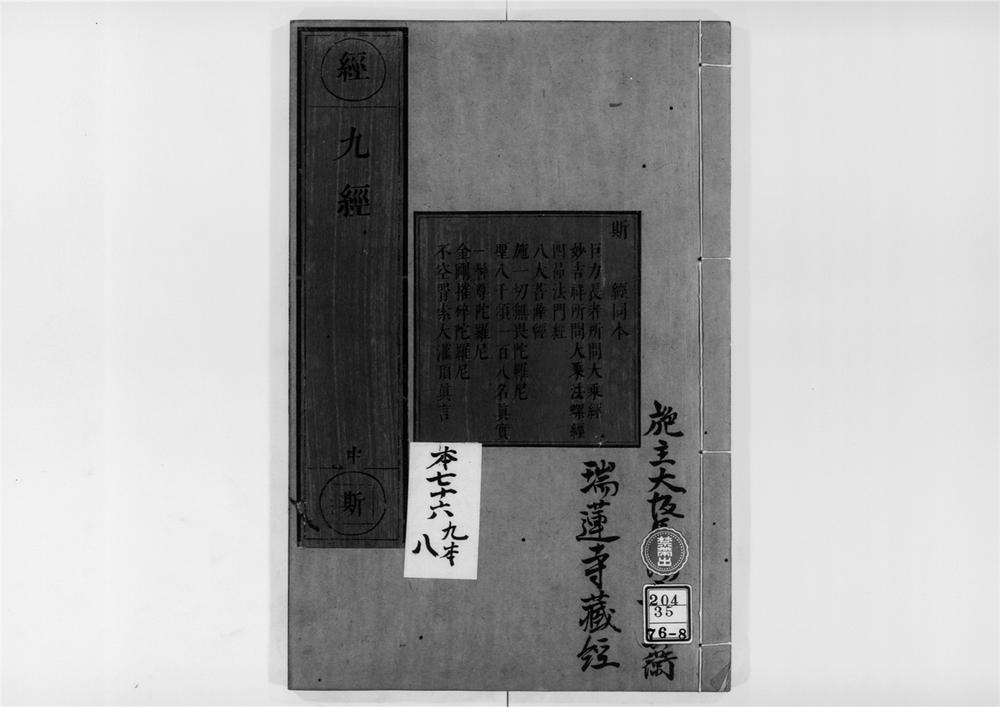 施主大坂
禁帶出
204
35
76-8
瑞蓮寺藏經
斯　經同本
巨力長者所問大乘經
妙吉祥所問大乘法螺經
四品法門經
八大菩薩經
施一切無畏陀羅尼
聖八千頌一百八名眞實
一髻尊陀羅尼
金剛摧碎陀羅尼
不空罥索大灌頂眞言
本七十六
九本
八
經
九經
中
斯